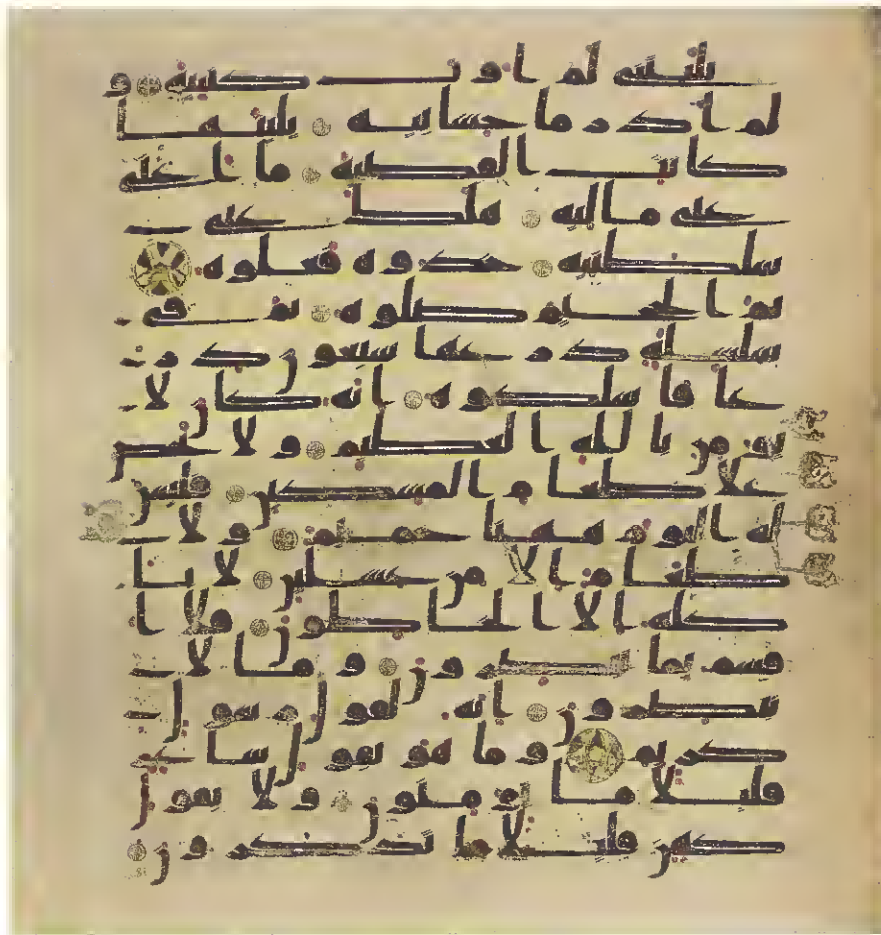 يليتني لم اوت كتبيه و
لم ادر ما حسابيه يليتها
كانت القضيه ما اغنى
عني ماليه هلك عني
سلطنيه خذوه فغلوه
ثم الجحيم صلوه ثم في
سلسله ذرعها سبعون ذر
عا فاسلكوه انه كان لا
يومن بالله العظيم ولا يحض
علا طعام المسكين فليس
له اليوم ههنا حميم ولا
طعام الا من غسلين لا يا
كله الا الخاطون فلا ا
قسم بما تبصرون وما لا
تبصرون انه لقول رسول
كريم وما هو بقول شاعر
قليلا ما تومنون ولا بقول
كهن قليلا ما تذكرون